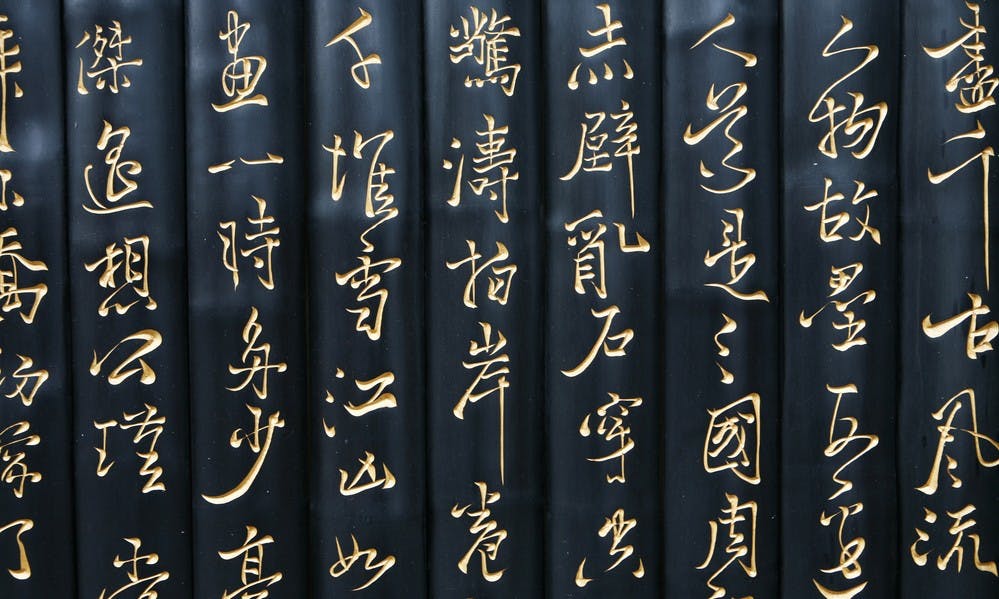 盡千古風流
人物故壘西邊
人道是三國周
赤壁亂石穿空
驚濤拍岸卷
千堆雪江山如
畫一時多少豪
傑遙想公瑾當
年小喬初嫁了